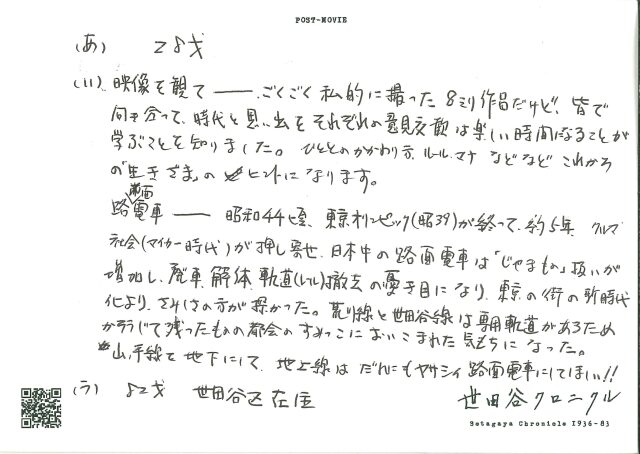 POST-MOVIE
(あ) 28才
(い) 映像を観て ―― ごくごく私的に撮った8ミリ作品だけど、皆で
向き合って、時代と思い出をそれぞれの意見交歓は楽しい時間になることが
学ぶことを知りました。 ひととのかかわり方、ルール、マナーなどなど これから
の「生きざま」の ヒントになります。
路面電車 ―― 昭和44頃、東京オリンピック(昭39)が終って、約5年 クルマ
社会(マイカー時代)が押し寄せ、日本中の路面電車は「じゃまもの」扱いが
増加し、廃車、解体、軌道(レール)撤去の憂き目になり、東京の街の新時代
化より、さみしさの方が深かった。荒川線と世田谷線は専用軌道があるため
かろうじて残ったものの都会のすみっこにおいこまれた気もちになった。
山手線を地下にして、地上線は だれにもヤサシイ路面電車にしてほしい!!
(う) 82才 世田谷区在住
世田谷クロニクル
Setagaya Chronicle 1936-83